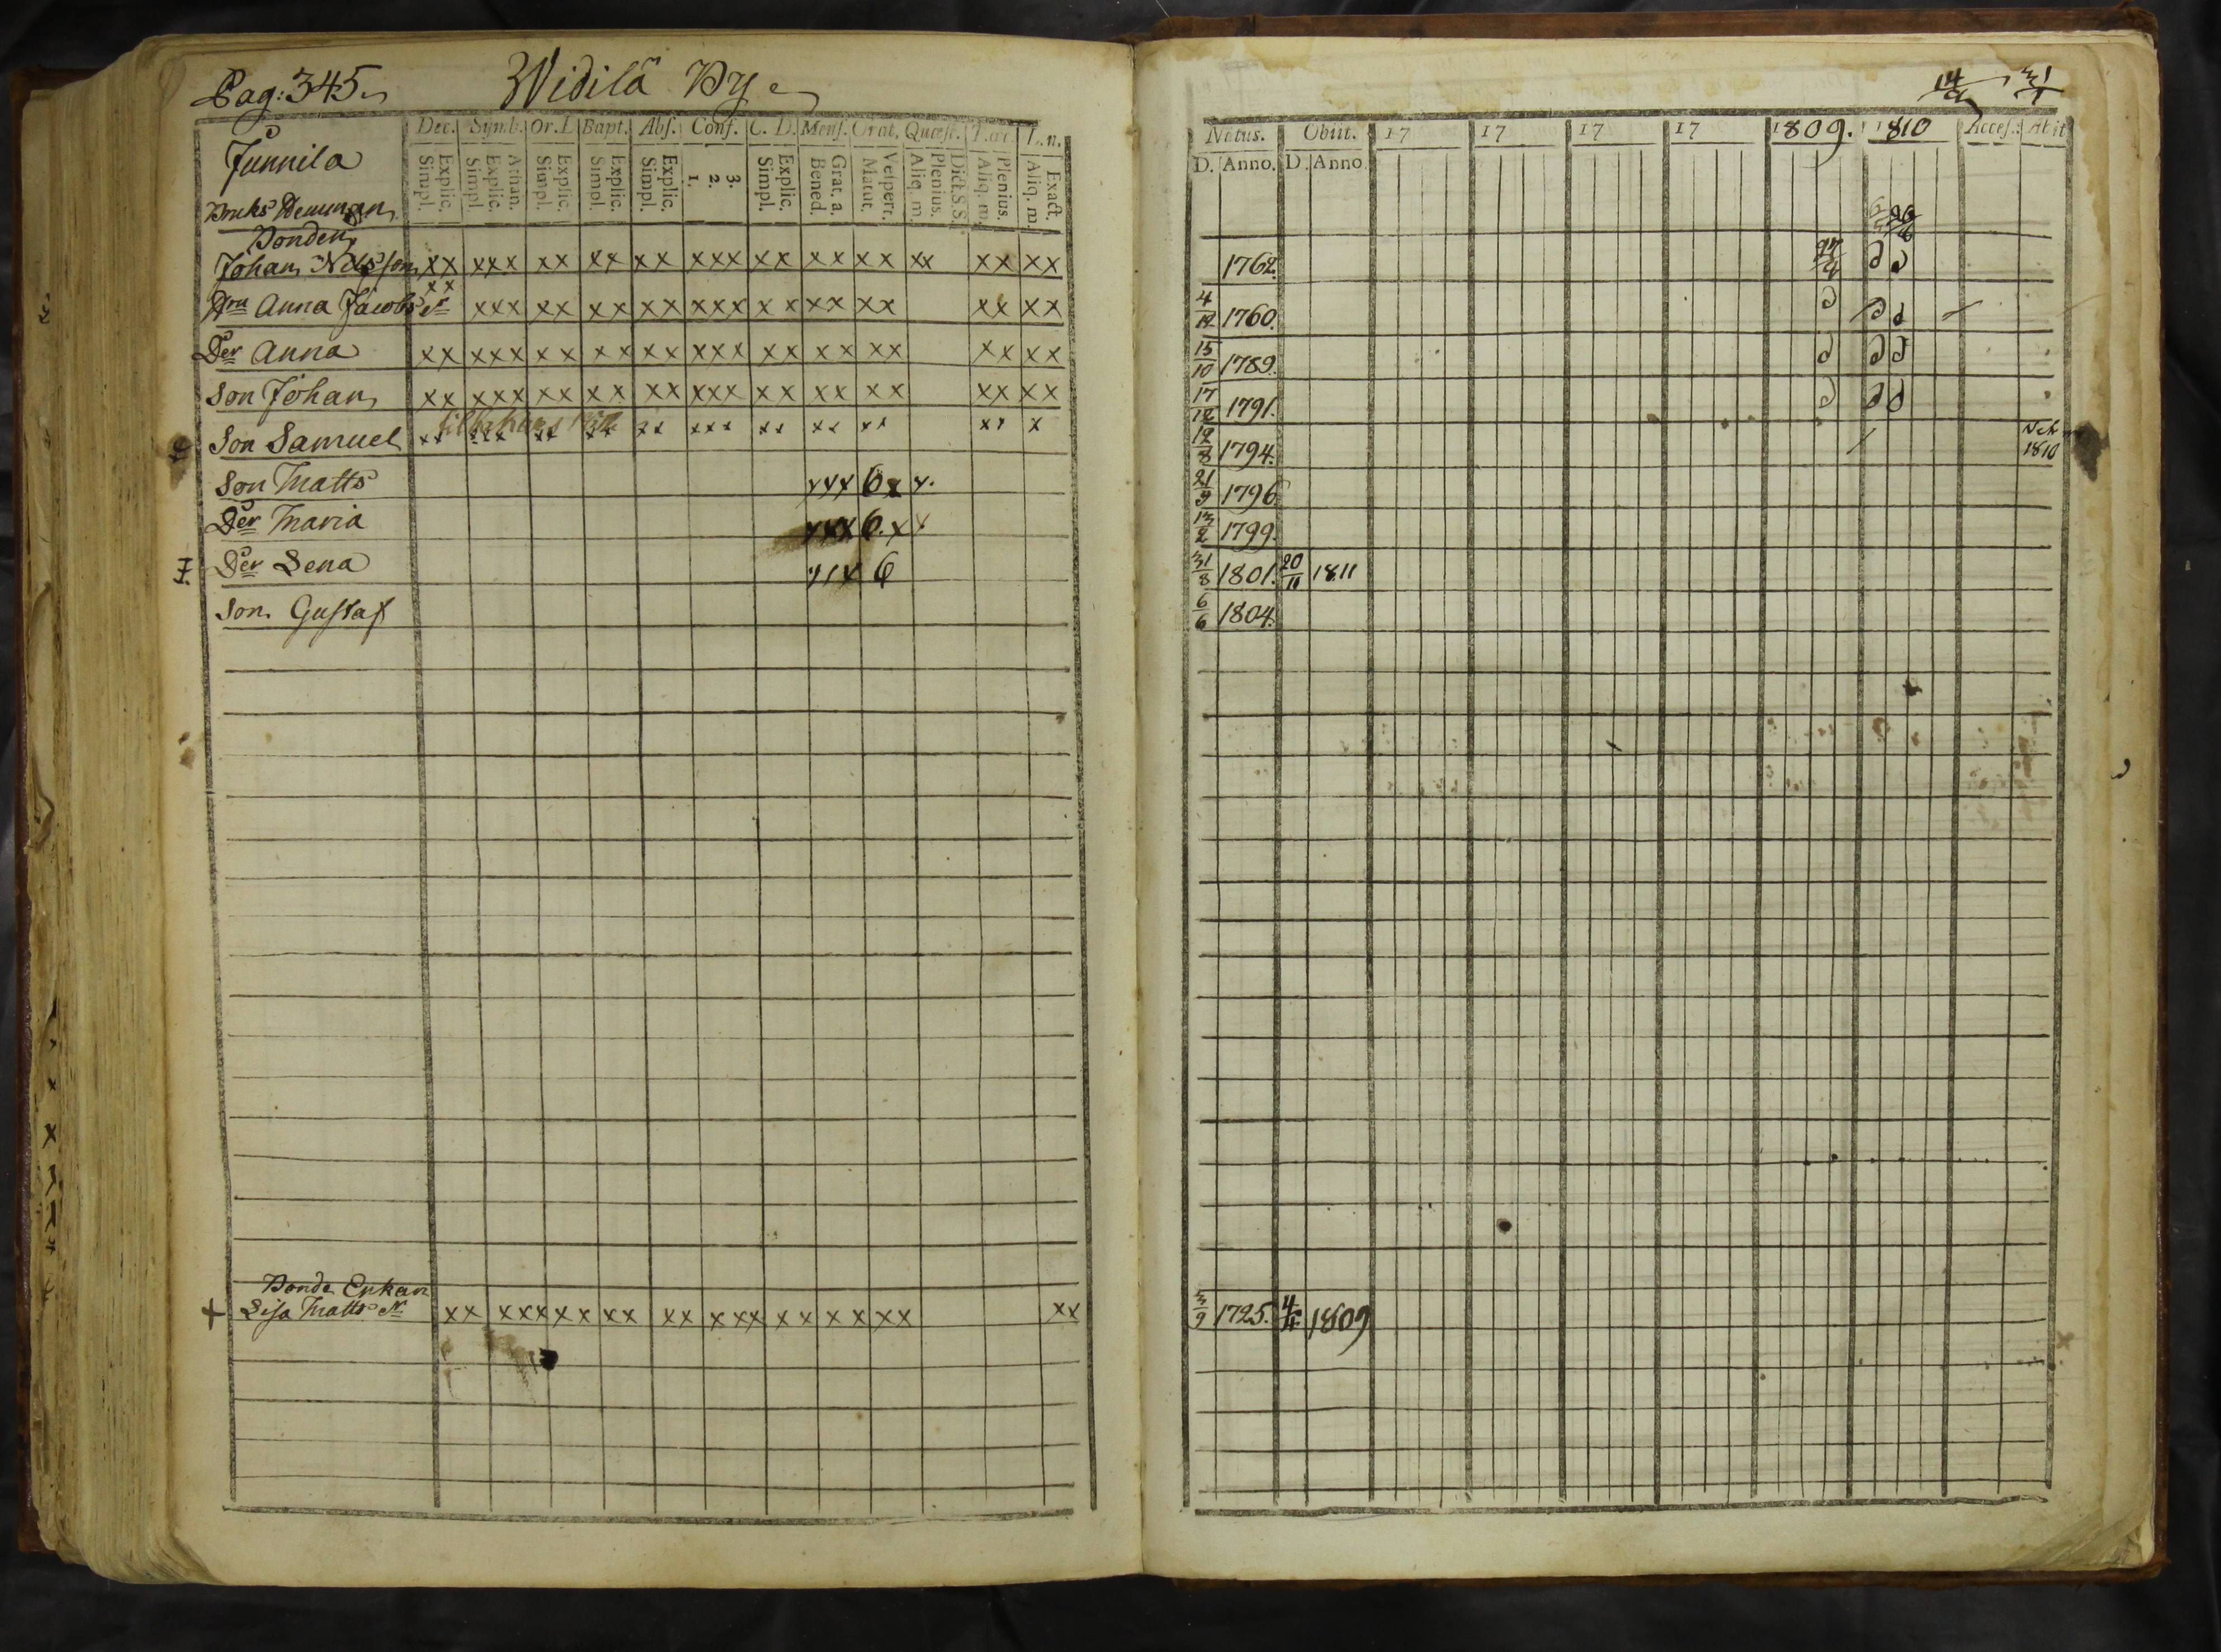 Pag: 345. Widilä By
Dec. Symb. Or. D. Bapt. Abs. Conf. C. D. Mens. Orat. Quæst.
Simpl. Explic. Simpl. Explic. Athan. Simpl. Explic. Simpl. Explic. Simpl. Explic. 1. 2. 3. Simpl. Explic. Bened. Grat. a. Matut. Vespert. Aliq. m. Plenius. Dict. S.S. Aliq. m. Plenius. Aliq. m. Exact.
Junnila
Bonden
Johan Nilsson xx xxx xx xx xx xxx xx xx xx xx xx xx
Anna Jacobs dr xx xxx xx xx xx xxx xx xx xx xx xx
Der Anna xx xxx xx xx xx xxx xx xx xx xx xx
Son Johan xx xxx xx xx xx xxx xx xx xx xx xx
Son Samuel xx xxx xx xx xx xxx xx xx xx xx x
Son Matts xxx 6 x x.
Der Maria xxx 6. xx
Der Lena 6
Son Gustaf
Bonde Enkan
+ Lisa Matts dr xx xxx xx xx xx xxx xx xx xx xx
Natus. Obiit. 17 17 17 17 1809. 1810 Acces. Abit
D. Anno. D. Anno
1762.
4/12 1760.
15/10 1789.
17/12 1791.
12/8 1794. 1810
21/9 1796
13/2 1799.
31/8 1801. 20/11 1811
6/6 1804.
3/9 1725. 4/4 1809